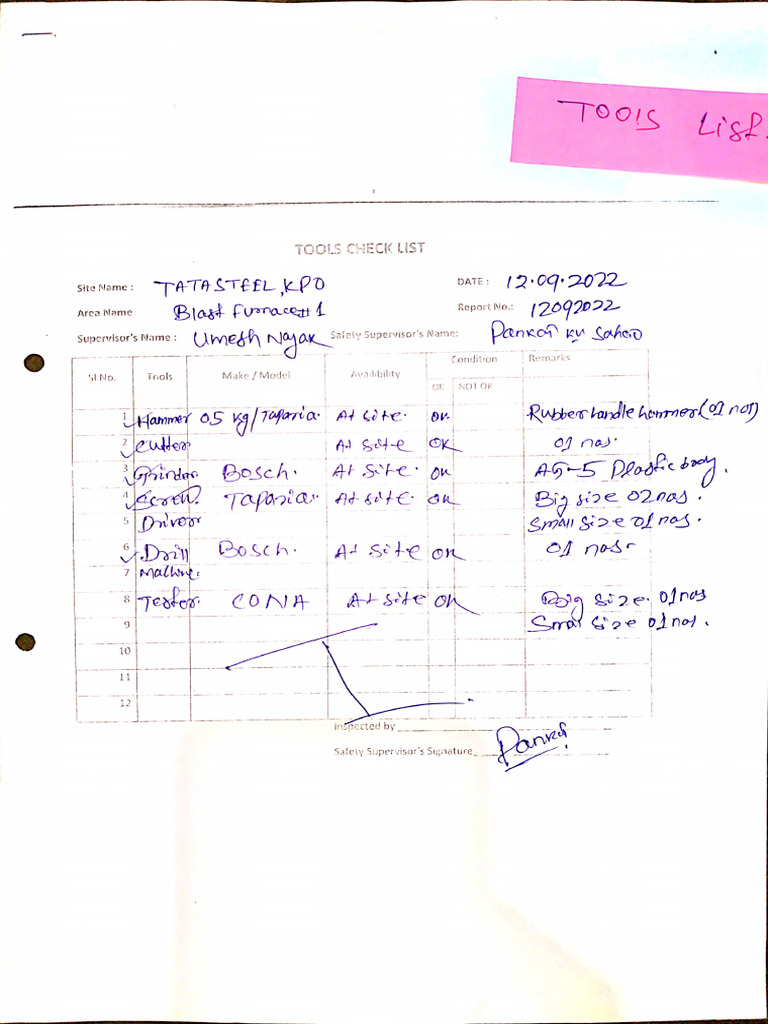 TOOlS LiSt.
TOOLS CHECK LIST
Site Name : TATASTEEL, KPO DATE : 12.09.2022
Area Name Blast Furnace#1 Report No.: 12092022
Supervisor's Name : Umesh Nayak Safety Supervisor's Name: Pankaj ku Sahoo
Sl No. Tools Make / Model Availibility Condition Remarks
OK NOT OK
1 Hammer 0.5 kg/Taparia. At site. OK Rubber handle hammer (01 nos)
2 Cutter At site OK 01 nos.
3 Grinder Bosch. At Site. OK AG-5 Plastic body.
4 Screw Taparia. At site OK Big size 02 nos.
5 Driver Small size 01 nos.
6 Drill Bosch. At site OK 01 nos.
7 Machine.
8 Tester. CONA At site OK Big size. 01 nos
9 Small size 01 nos.
10
11
12
Inspected by
Safety Supervisor's Signature Pankaj